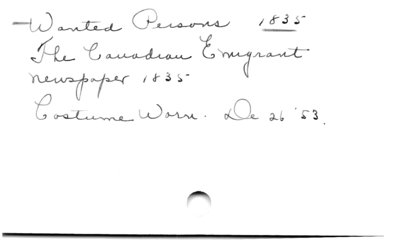 Wanted Persons 1835
The Canadian Emigrant
newspaper 1835
Costume Worn. De 26 '53.